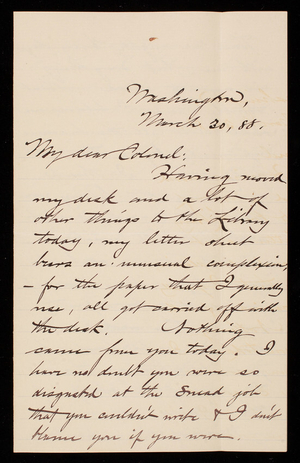 Washington,
March 30, 88.
My dear Colonel:
Having moved
my desk and a lot of
other things to the Library
today, my letter sheet
bears an unusual complexion,
- for the paper that I generally
use, all got carried off with
the desk. Nothing
came from you today. I
have no doubt you were so
disgusted at the Smead job
that you couldn't write & I don't
blame you if you were.